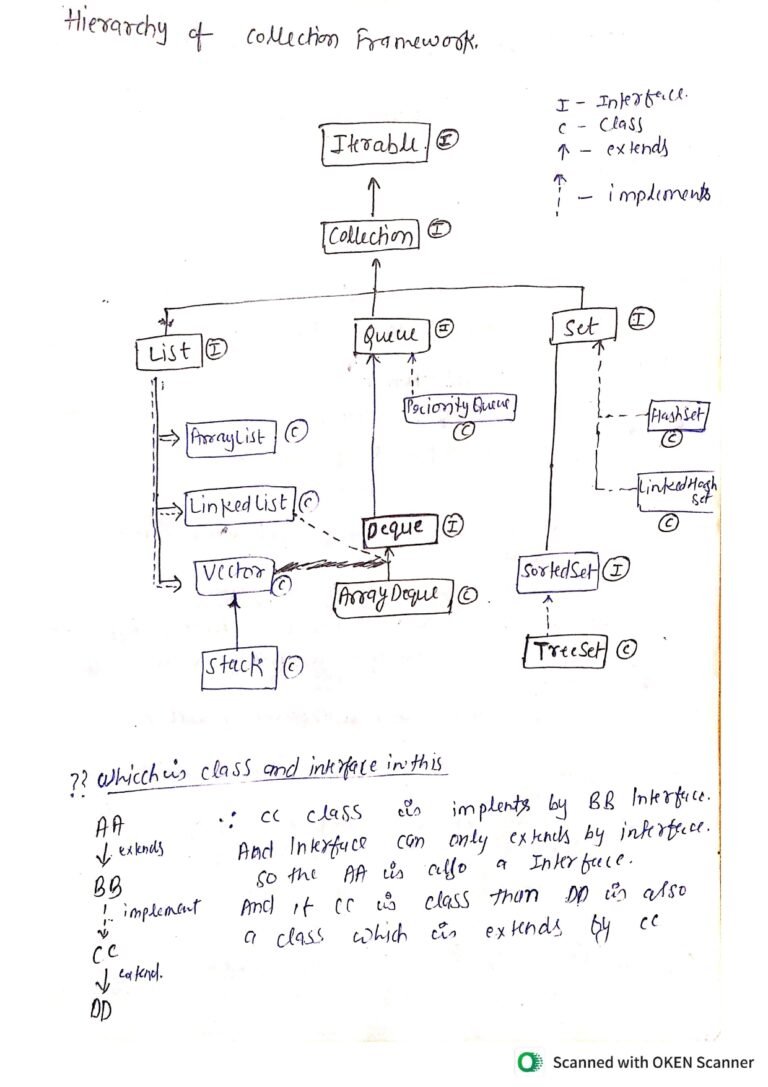 Hierarchy of Collection Framework.
I - Interface.
C - Class
↑ - extends
↑ - implements
Iterable I
Collection I
List I
Queue I
Set I
PriorityQueue
C
ArrayList C
HashSet
C
LinkedList C
LinkedHash
Set
C
Deque I
Vector C
ArrayDeque C
SortedSet I
Stack C
TreeSet C
?? Whicch is class and interface in this
AA
↓ extends
BB
↓ implement
CC
↓ extend.
DD
∴ CC class is implents by BB Interface.
And Interface can only extends by interface.
so the AA is also a Interface.
And if CC is class than DD is also
a class which is extends by CC
Scanned with OKEN Scanner